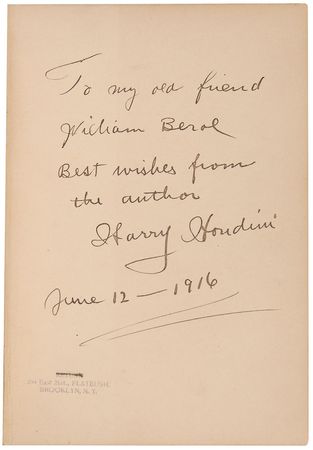 To my old friend
William Berol
Best wishes from
the author
Harry Houdini
June 12 — 1916
FLATBUSH,
BROOKLYN, N.Y.